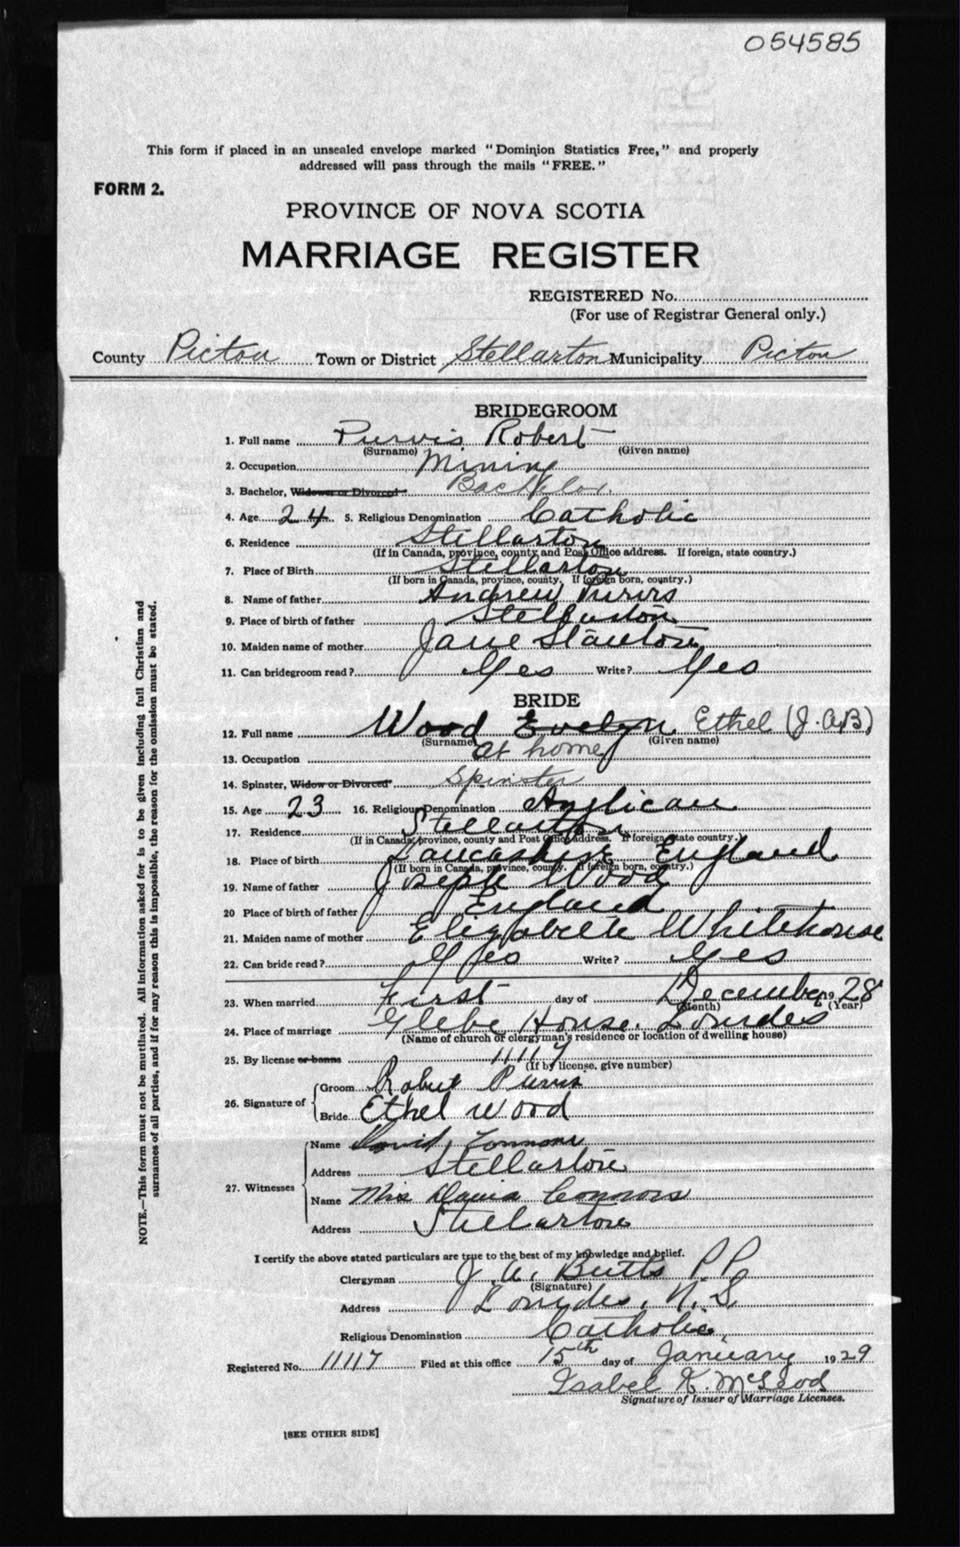 054585
This form if placed in an unsealed envelope marked "Dominion Statistics Free," and properly
addressed will pass through the mails "FREE."
FORM 2.
PROVINCE OF NOVA SCOTIA
MARRIAGE REGISTER
REGISTERED No.
(For use of Registrar General only.)
County Pictou Town or District Stellarton Municipality Pictou
BRIDEGROOM
1. Full name Purvis Robert
(Surname) (Given name)
2. Occupation Mining
3. Bachelor, Widower or Divorced Bachelor.
4. Age 24 5. Religious Denomination Catholic
6. Residence Stellarton
(If in Canada, province, county and Post Office address. If foreign, state country.)
7. Place of Birth Stellarton
(If born in Canada, province, county. If foreign born, country.)
8. Name of father Andrew Purvis
9. Place of birth of father Stellarton
10. Maiden name of mother Jane Stanton
11. Can bridegroom read? Yes Write? Yes
BRIDE
12. Full name Wood Evelyn Ethel (J.A.B)
(Surname) (Given name)
13. Occupation at home
14. Spinster, Widow or Divorced Spinster
15. Age 23 16. Religious Denomination Anglican
17. Residence Stellarton
(If in Canada, province, county and Post Office address. If foreign, state country.)
18. Place of birth Lancashire England
(If born in Canada, province, county. If foreign born, country.)
19. Name of father Joseph Wood
20 Place of birth of father England
21. Maiden name of mother Elizabeth Whitehouse
22. Can bride read? Yes Write? Yes
23. When married First day of December 1928
(Month) (Year)
24. Place of marriage Glebe House, Lourdes
(Name of church or clergyman's residence or location of dwelling house)
25. By license or banns 11117
(If by license, give number)
26. Signature of
Groom Robert Purvis
Bride Ethel Wood
27. Witnesses
Name David Connors
Address Stellarton
Name Mrs David Connors
Address Stellarton
I certify the above stated particulars are true to the best of my knowledge and belief.
Clergyman J. A. Butts P P
(Signature)
Address Lourdes, N.S.
Religious Denomination Catholic
Registered No. 11117 Filed at this office 15th day of January 1929
Isabel K. McLeod
Signature of Issuer of Marriage Licenses.
[SEE OTHER SIDE]
NOTE.—This form must not be mutilated. All information asked for is to be given including full Christian and
surnames of all parties, and if for any reason this is impossible, the reason for the omission must be stated.